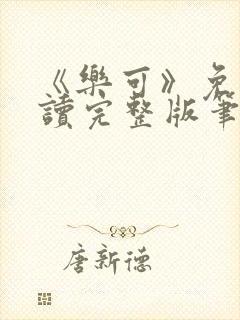 《樂可》免
讀完整版筆
唐新德